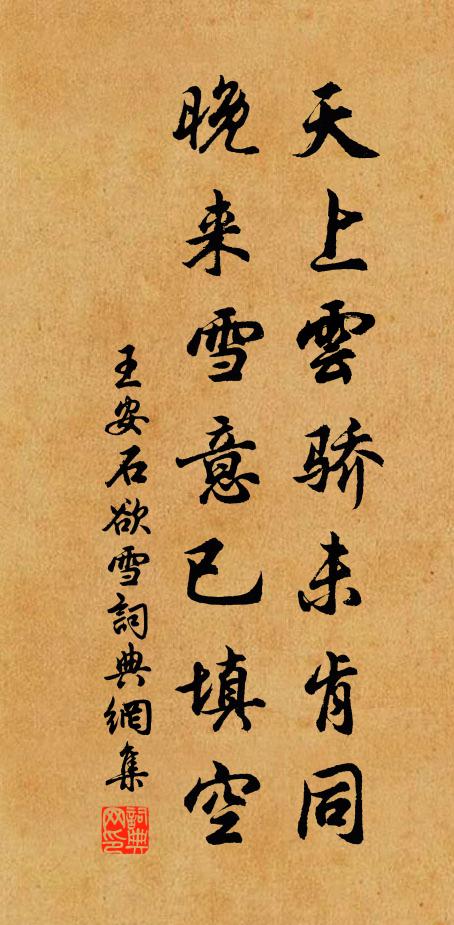 天上雲骄未肯同
晚来雪意已填空
王安石欲雪詞典網集
詞典网印